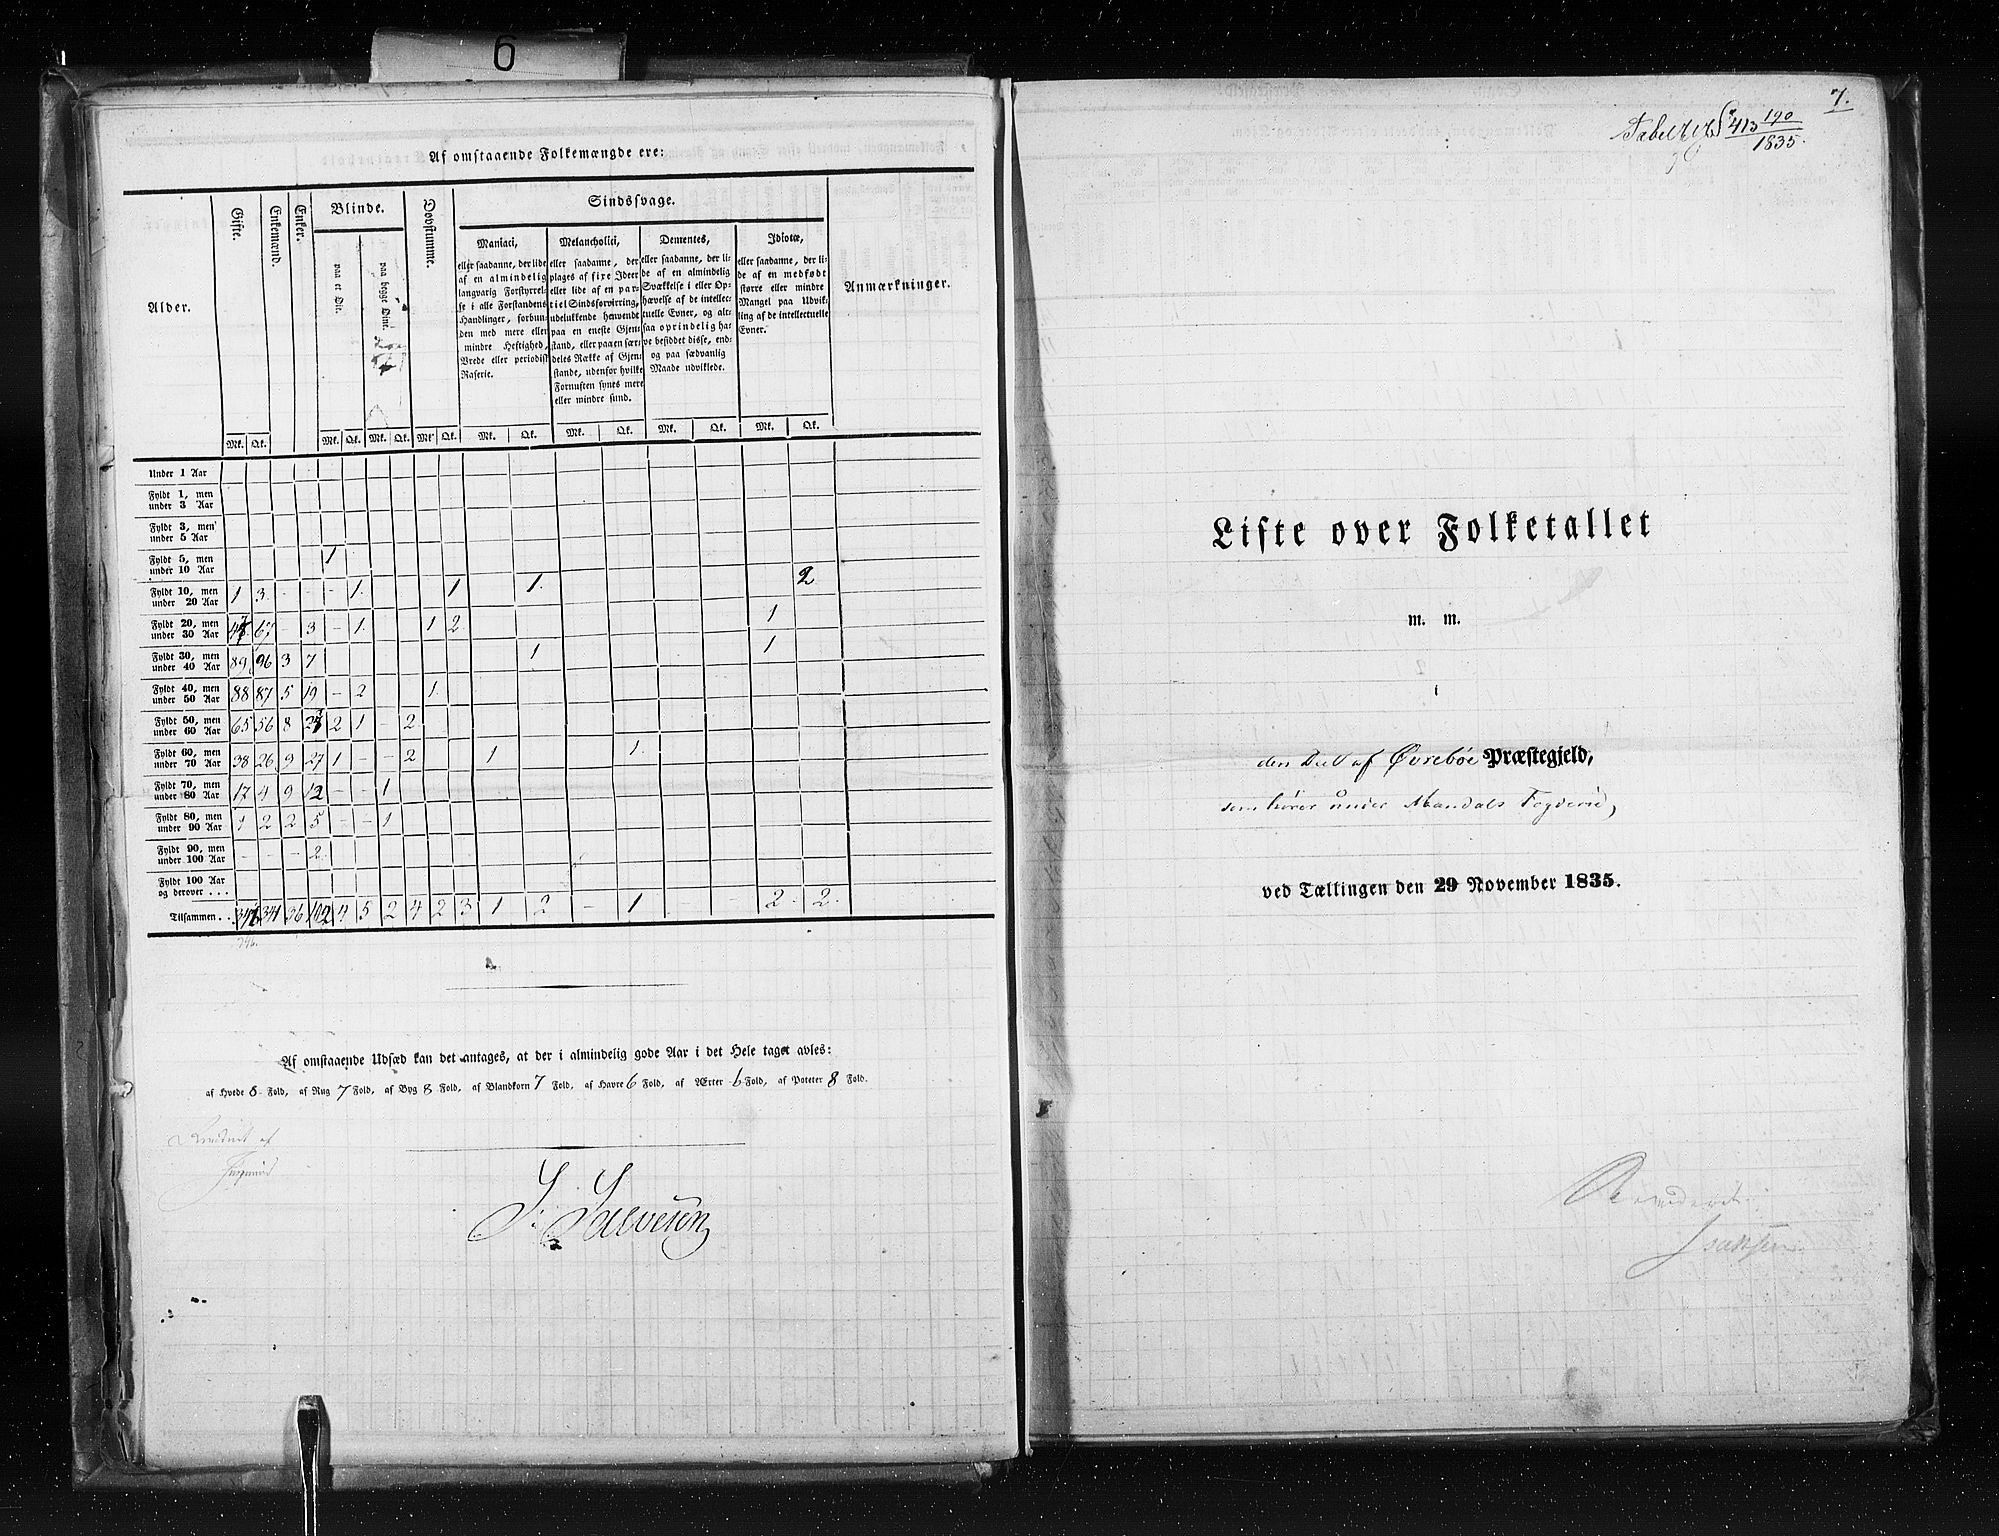 6
Af omstaaende Folkemængde ere:
Alder.
Gifte.
Enkemænd.
Enker.
Blinde.
paa et Øie.
paa begge Øine.
Døvstumme.
Sindssvage.
Maniaci,
eller saadanne, der lide
af en almindelig
langvarig Forstyrrel-
se i alle Forstandens
Handlinger, forbun-
den med mere eller
mindre Heftighed,
Vrede eller periodisk
Raserie.
Melancholici,
eller saadanne, der
plages af fixe Ideer
eller lide af en par-
tiel Sindsforvirring,
udelukkende henvende
paa en eneste Gjen-
stand, eller paa en sær-
deles Række af Gjen-
stande, udenfor hvilke
Fornuften synes mere
eller mindre sund.
Dementes,
eller saadanne, der li-
de af en almindelig
Svækkelse i eller Op-
hævelse af de intellec-
tuelle Evner, og alt-
saa oprindelig ha-
ve besiddet disse, end-
og paa sædvanlig
Maade udviklede.
Idiotæ,
eller saadanne, der li-
de af en medfødt
større eller mindre
Mangel paa Udvik-
ling af de intellectuelle
Evner.
Anmærkninger.
Mk. Qk. Mk. Qk. Mk. Qk. Mk Qk. Mk. Qk. Mk. Qk. Mk. Qk. Mk. Qk.
Under 1 Aar
Fyldt 1, men
under 3 Aar
Fyldt 3, men
under 5 Aar
Fyldt 5, men
under 10 Aar 1
Fyldt 10, men
under 20 Aar 1 3 - - - 1. 1 1. 2
Fyldt 20, men
under 30 Aar 67 - 3 - 1. 1 2 1
Fyldt 30, men
under 40 Aar 89 96 3 7 1 1
Fyldt 40, men
under 50 Aar 88 87 5 19 - 2 1.
Fyldt 50, men
under 60 Aar 65 56 8 2 1 - 2
Fyldt 60, men
under 70 Aar 38 26 9 27 1 - - 2 1 1.
Fyldt 70, men
under 80 Aar 17 4 9 12 - - 1
Fyldt 80, men
under 90 Aar 1 2 2 5 - - 1
Fyldt 90, men
under 100 Aar - - - 2
Fyldt 100 Aar
og derover . . .
Tilsammen . . 341 36 102 4 5 2 4 2 3 1 2 - 1 2. 2.
346.
Af omstaaende Udsæd kan det antages, at der i almindelig gode Aar i det Hele taget avles:
af Hvede 8 Fold, af Rug 7 Fold, af Byg 8 Fold, af Blandkorn 7 Fold, af Havre 6 Fold, af Ærter 6 Fold, af Poteter 8 Fold.
Revideret af
S. Salvesen
7.
413 190/1835.
Liste over Folketallet
m. m.
i
den Deel af Øvrebøe Præstegjeld,
som hører under Mandals Fogderie,
ved Tællingen den 29 November 1835.
Revideret
Isachsen